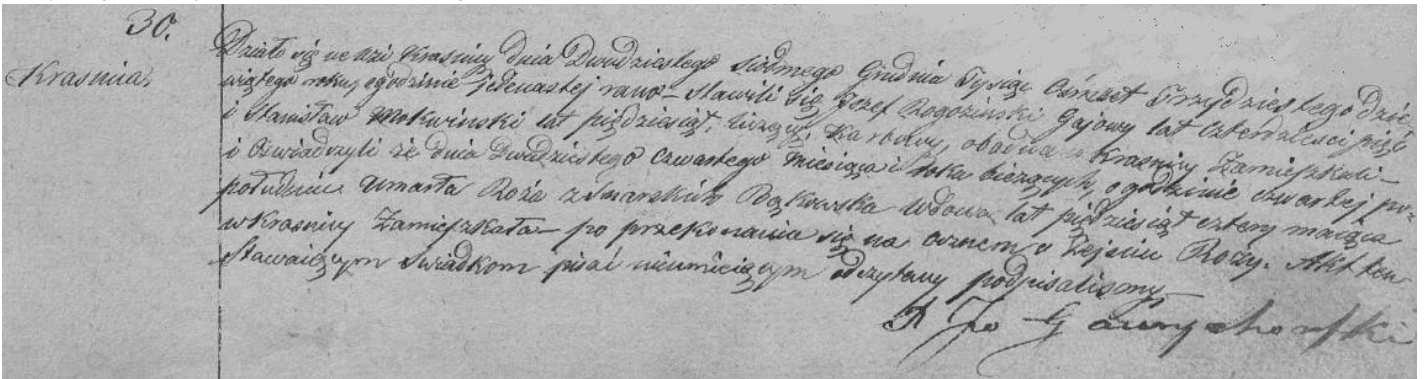 30.
Krasnica
Działo się we wsi Krasnicy dnia Dwudziestego siódmego Grudnia Tysiąc Ośmset Trzydziestego dzie
wiątego roku, o godzinie jedenastej rano — Stawili się Jozef Rogozinski Gajowy lat czterdziesci pięć
i Stanisław Mokwinski lat pięдziesiąt, liczący, Karbowy, obadwa w Krasnicy Zamieszkali —
i Oświadczyli że dnia Dwudziestego czwartego miesiąca i roku bieżących, o godzinie czwartej po
południu Umarła Roża z Bąkowska Wdowa lat pięдziesiąt cztery maiąca
w Krasnicy Zamieszkała — po przekonaniu się na ocznem o Zejściu Roży. Akt ten
Stawaiącym Swiadkom pisać nieumieiącym odczytany podpisalismy —